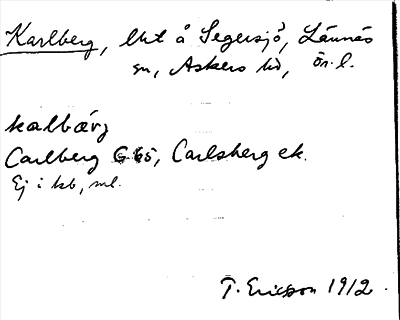 Karlberg, lht å Segersjö, Lännäs
sn, Askers hd, Ör. l.
kalbärj
Carlberg G 65, Carlsberg ek.
Ej i kb, ml.
T. Ericsson 1912.